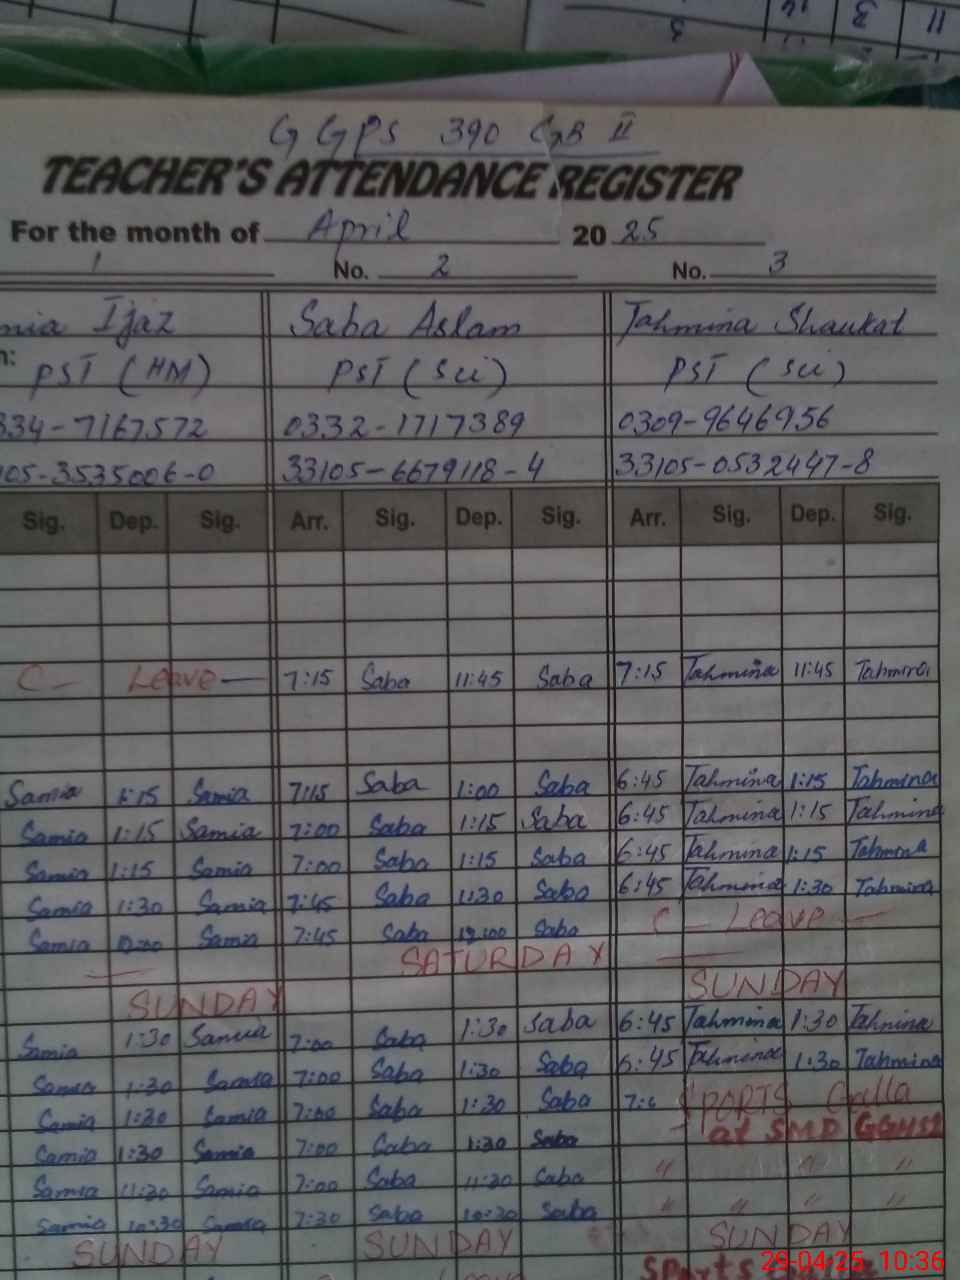 11 3
G GPS 390 GB II
TEACHER'S ATTENDANCE REGISTER
For the month of April 20 25
1 No. 2 No. 3
mia Ijaz Saba Aslam Tahmina Shaukat
n: PST (HM) PST (Sci) PST (Sci)
334-7167572 0332-1717389 0309-9646956
105-3535006-0 33105-6679118-4 33105-0532447-8
Sig. Dep. Sig. Arr. Sig. Dep. Sig. Arr. Sig. Dep. Sig.
C- Leave 7:15 Saba 11:45 Saba 7:15 Tahmina 11:45 Tahmina
Samia 1:15 Samia 7:15 Saba 1:00 Saba 6:45 Tahmina 1:15 Tahmina
Samia 1:15 Samia 7:00 Saba 1:15 Saba 6:45 Tahmina 1:15 Tahmina
Samia 1:15 Samia 7:00 Saba 1:15 Saba 6:45 Tahmina 1:15 Tahmina
Samia 1:30 Samia 7:45 Saba 1:30 Saba 6:45 Tahmina 1:30 Tahmina
Samia Samia 7:45 Saba Saba C- Leave
SATURDAY
SUNDAY SUNDAY
Samia 1:30 Samia 7:00 Saba 1:30 Saba 6:45 Tahmina 1:30 Tahmina
Samia 1:30 Samia 7:00 Saba 1:30 Saba 6:45 Tahmina 1:30 Tahmina
Samia 1:30 Samia 7:00 Saba 1:30 Saba SPORTS
Samia 1:30 Samia 7:00 Saba 1:30 Saba at SMD
Samia 11:30 Samia 7:00 Saba 11:30 Saba " " "
Samia 10:30 Samia 7:30 Saba 10:30 Saba " " " "
SUNDAY SUNDAY SUNDAY
Leave Sports
29-04-25 10:36